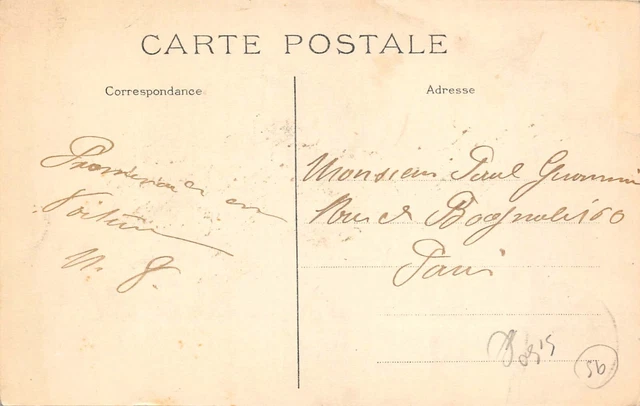 CARTE POSTALE
Correspondance
Adresse
Promenade en
Voiture
Monsieur Paul
Rue de Bagnolet 160
Paris
56